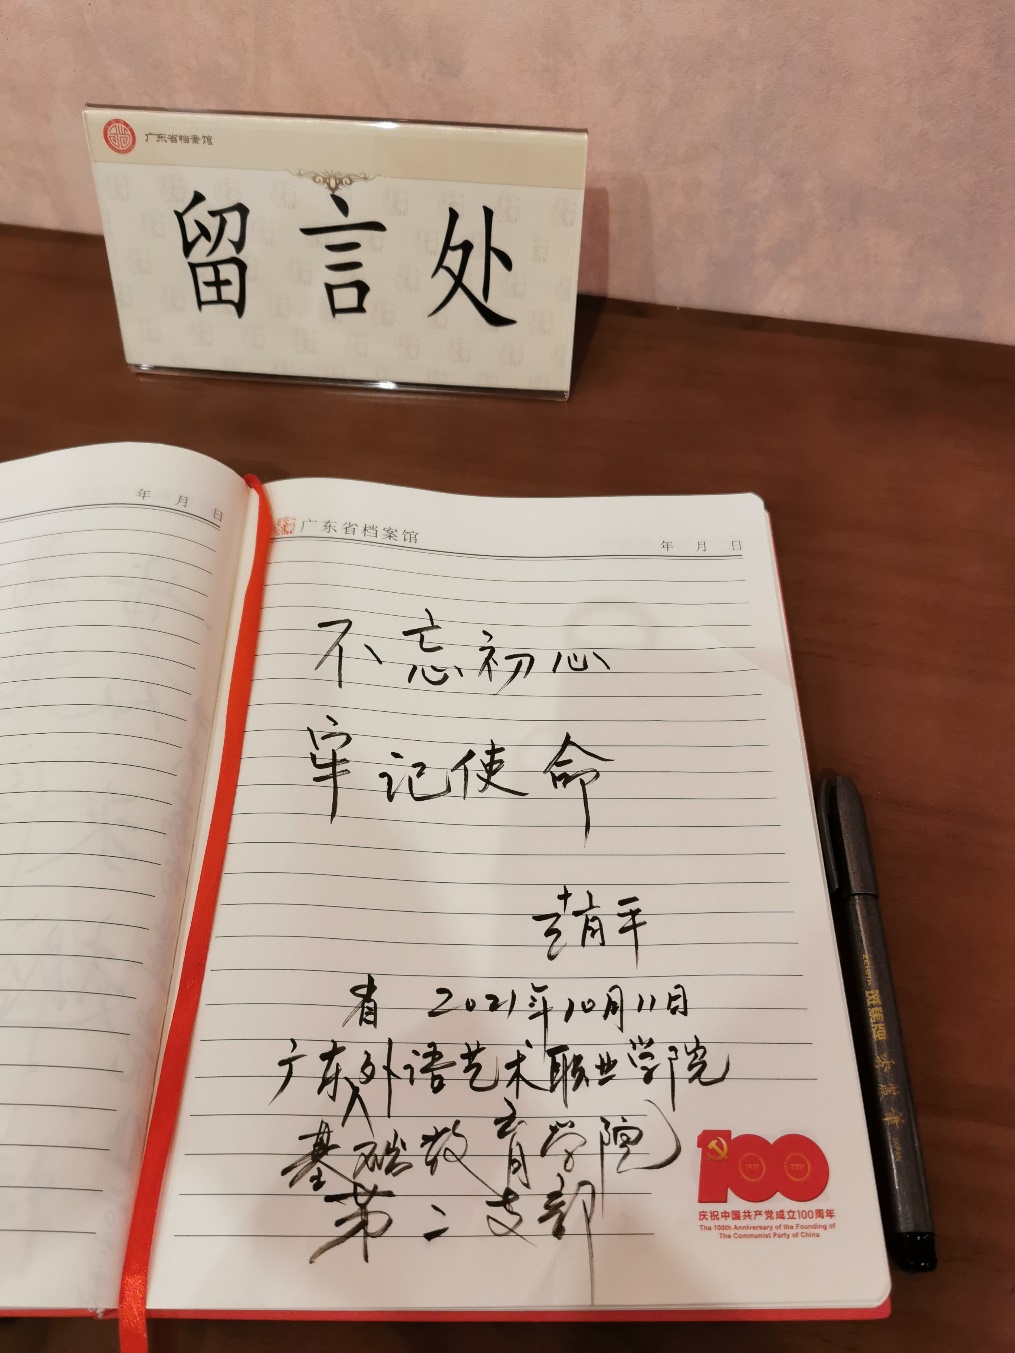 广东省档案馆
留言处
年 月 日
广东省档案馆
年 月 日
不忘初心
牢记使命
2021年10月11日
广东外语艺术职业学院
基础教育学院
第二支部
100
庆祝中国共产党成立100周年
The 100th Anniversary of the Founding of
The Communist Party of China